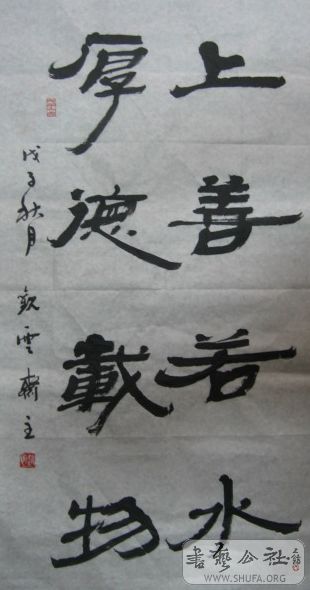 上善若水
厚德載物
戊子秋月
觀雲齋主
書藝公社
WWW.SHUFA.ORG